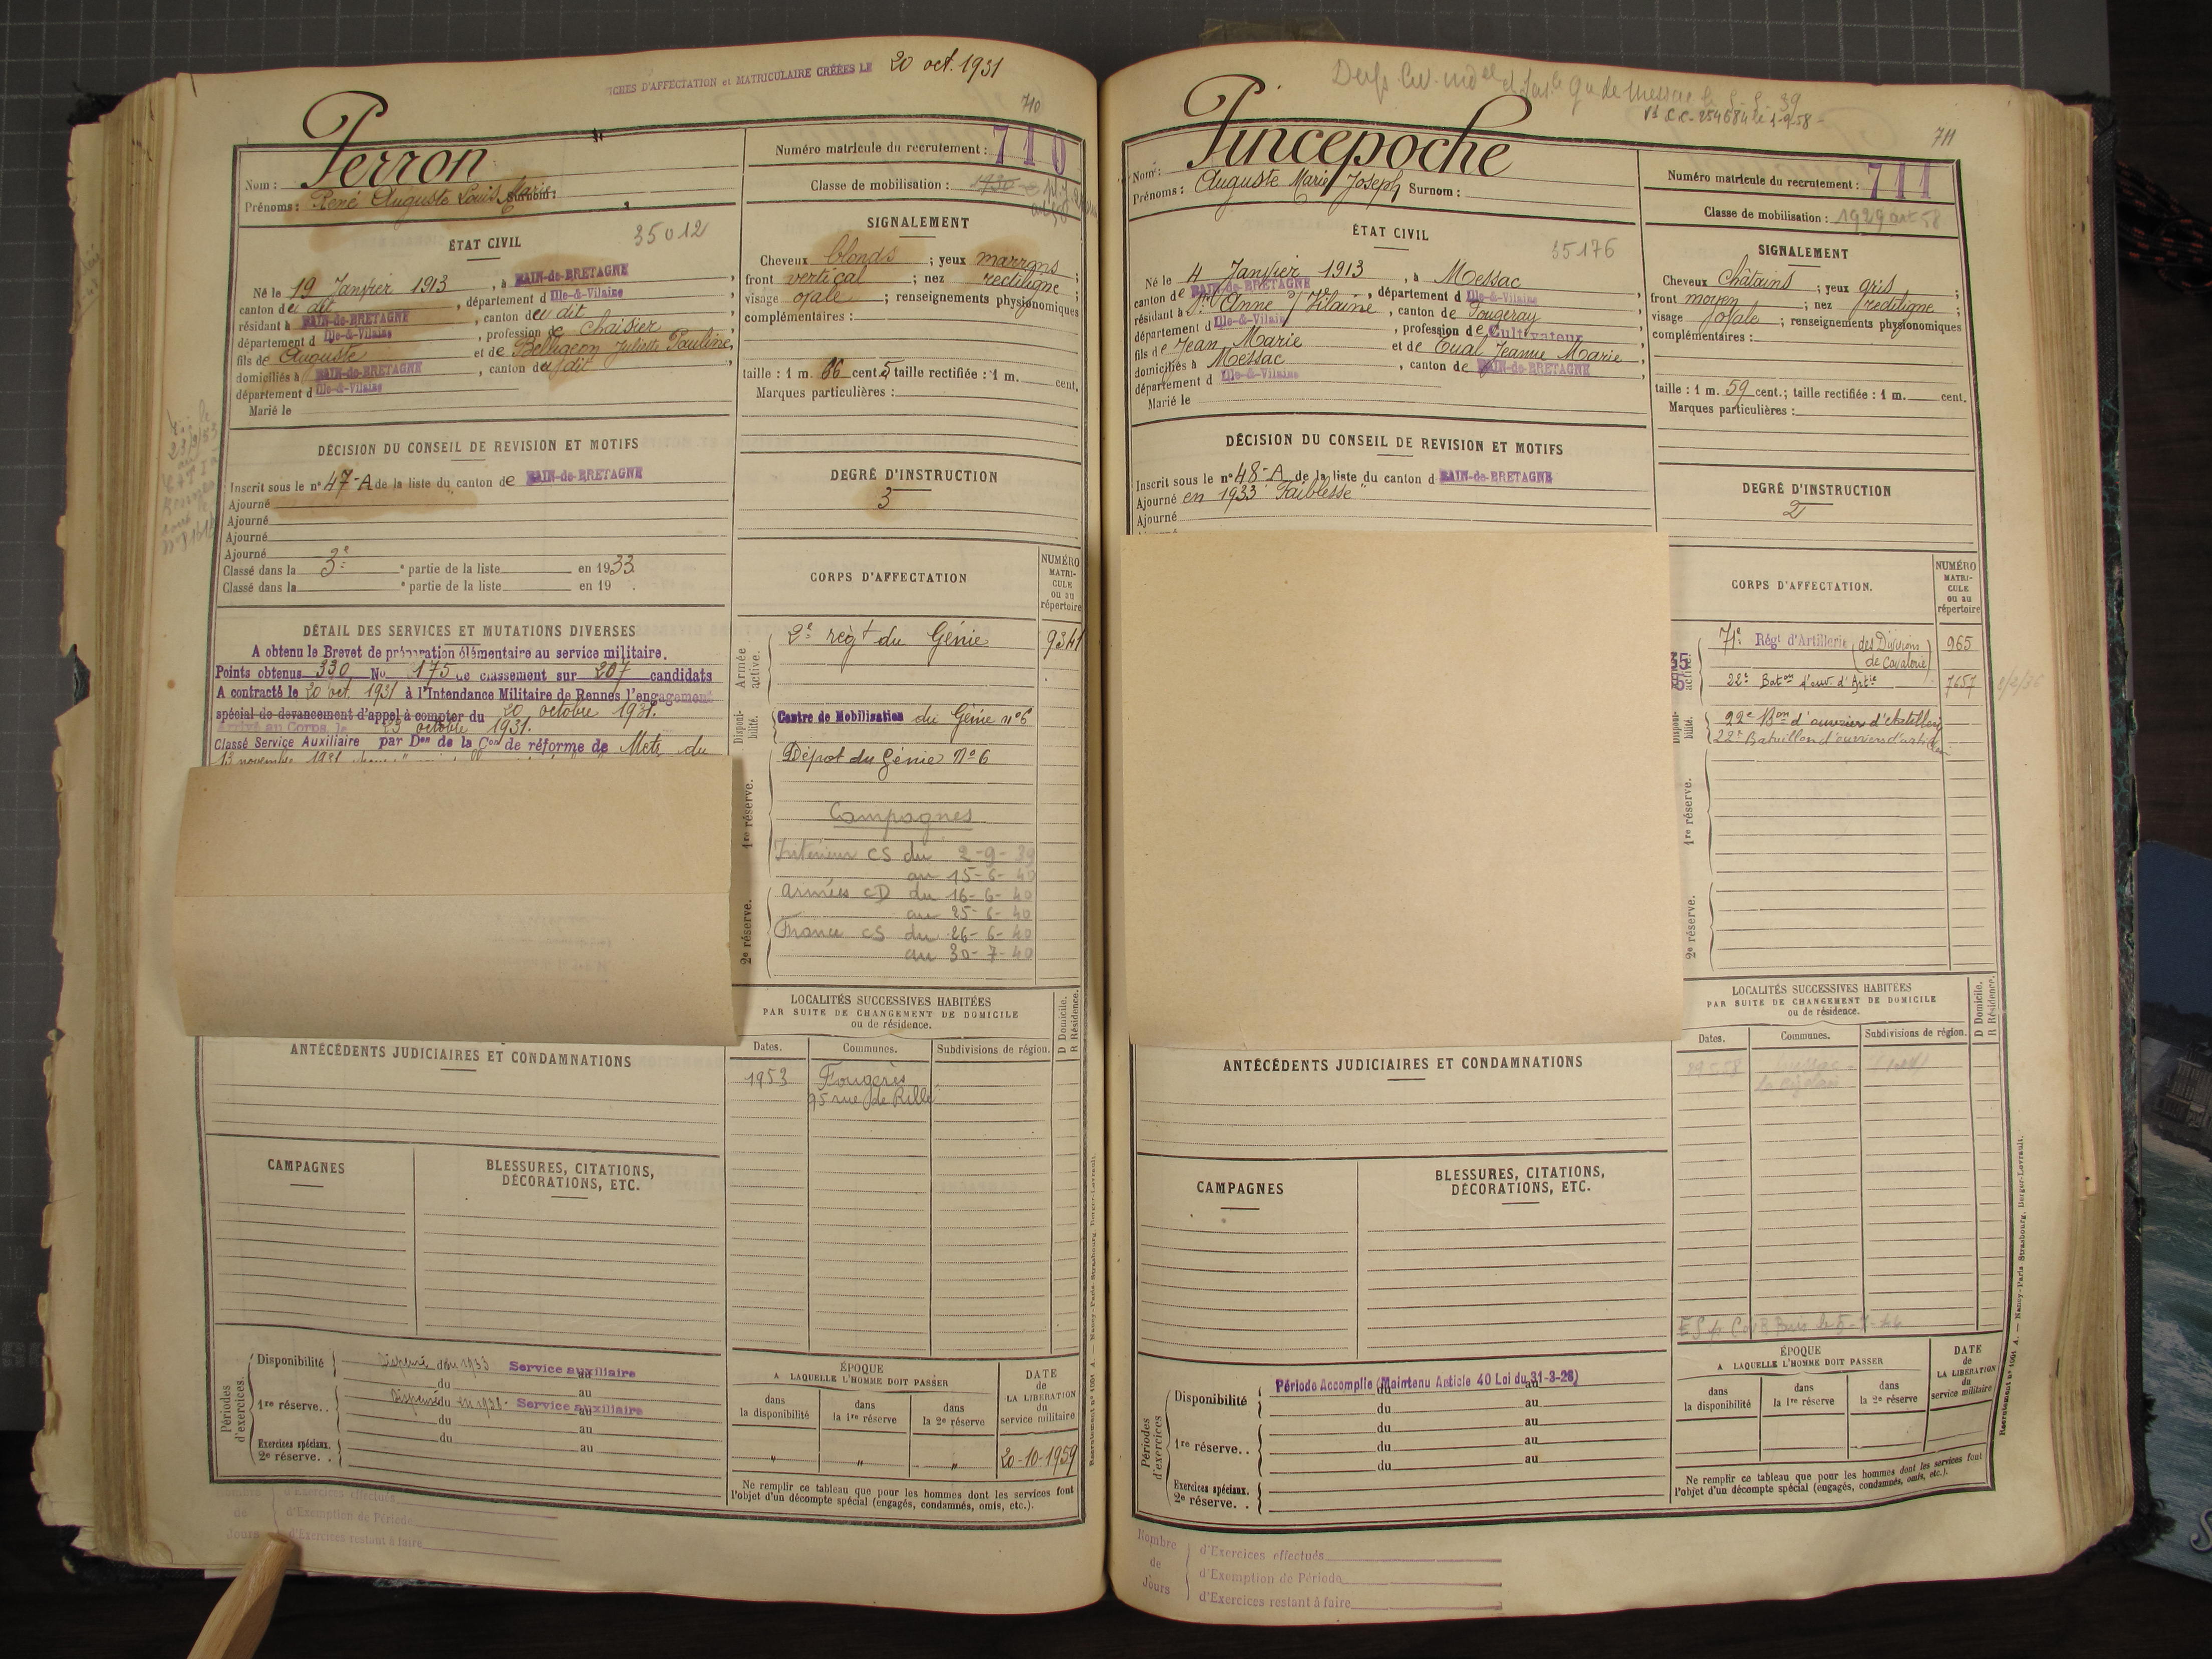 FICHES D'AFFECTATION et MATRICULAIRE CRÉÉES LE 20 oct. 1931
710
Nom : Perron
Prénoms : René Auguste Louis Surnom :
Numéro matricule du recrutement : 710
Classe de mobilisation : 1930
ÉTAT CIVIL
35012
Né le 19 Janvier 1913, à BAIN-de-BRETAGNE,
canton de dit, département d Ille-&-Vilaine
résidant à BAIN-de-BRETAGNE, canton du dit
département d Ille-&-Vilaine, profession de chaisier,
fils de Auguste et de Belligeon Juliette Pauline,
domiciliés à BAIN-de-BRETAGNE, canton du dit,
département d Ille-&-Vilaine
Marié le
SIGNALEMENT
Cheveux blonds ; yeux marrons ;
front vertical ; nez rectiligne ;
visage ovale ; renseignements physionomiques
complémentaires :
taille : 1 m. 66 cent. 5 taille rectifiée : 1 m. cent.
Marques particulières :
DÉCISION DU CONSEIL DE REVISION ET MOTIFS
Inscrit sous le n° 47-A de la liste du canton de BAIN-de-BRETAGNE
Ajourné
Ajourné
Ajourné
Ajourné
Classé dans la 3e partie de la liste en 1933.
Classé dans la e partie de la liste en 19 .
DEGRÉ D'INSTRUCTION
3
DÉTAIL DES SERVICES ET MUTATIONS DIVERSES
A obtenu le Brevet de préparation élémentaire au service militaire.
Points obtenus 330 No 175 de classement sur 207 candidats
A contracté le 20 oct. 1931 à l'Intendance Militaire de Rennes l'engagement
spécial de devancement d'appel à compter du 20 octobre 1931.
Arrivé au Corps le 23 octobre 1931.
Classé Service Auxiliaire, par Don de la Con de réforme de Metz du
13 novembre 1931
CORPS D'AFFECTATION
NUMÉRO MATRICULE ou au répertoire
Armée active.
2e régt du Génie 9341
Disponibilité.
Centre de Mobilisation du Génie n° 6
1re réserve.
Dépot du Génie N° 6
Campagnes
Intérieur CS du 2-9-39
au 15-6-40
2e réserve.
Armées CD du 16-6-40
au 25-6-40
France CS du 26-6-40
au 30-7-40
LOCALITÉS SUCCESSIVES HABITÉES
PAR SUITE DE CHANGEMENT DE DOMICILE
ou de résidence.
D Domicile. R Résidence.
Dates. Communes. Subdivisions de région.
1953 Fougères
95 rue de Rillé
ANTÉCÉDENTS JUDICIAIRES ET CONDAMNATIONS
CAMPAGNES
BLESSURES, CITATIONS, DÉCORATIONS, ETC.
Périodes d'exercices.
Disponibilité Dispensé du 1933 Service auxiliaire au
du au
1re réserve. . Dispensé du en 1938 Service auxiliaire au
du au
du au
Exercices spéciaux. 2e réserve. .
ÉPOQUE
A LAQUELLE L'HOMME DOIT PASSER
dans la disponibilité
dans la 1re réserve
dans la 2e réserve
DATE de LA LIBÉRATION du service militaire
" " " 20-10-1959
Ne remplir ce tableau que pour les hommes dont les services font
l'objet d'un décompte spécial (engagés, condamnés, omis, etc.).
de Jours
d'Exercices effectués
d'Exemption de Période
d'Exercices restant à faire
Recrutement n° 1001 A. — Nancy-Paris-Strasbourg, Berger-Levrault.
711
Nom : Pincepoche
Prénoms : Auguste Marie Joseph Surnom :
Numéro matricule du recrutement : 711
Classe de mobilisation : 1929 art 58
ÉTAT CIVIL
35176
Né le 4 Janvier 1913, à Messac
canton de BAIN-de-BRETAGNE, département d Ille-&-Vilaine
résidant à Ste Anne s/ Vilaine, canton de Fougeray
département d Ille-&-Vilaine, profession de Cultivateur
fils de Jean Marie et de Gual Jeanne Marie,
domiciliés à Messac, canton de BAIN-de-BRETAGNE,
département d Ille-&-Vilaine
Marié le
SIGNALEMENT
Cheveux Châtains ; yeux gris ;
front moyen ; nez rectiligne ;
visage ovale ; renseignements physionomiques
complémentaires :
taille : 1 m. 59 cent. ; taille rectifiée : 1 m. cent.
Marques particulières :
DÉCISION DU CONSEIL DE REVISION ET MOTIFS
Inscrit sous le n° 48-A de la liste du canton d BAIN-de-BRETAGNE
Ajourné en 1933 "Faiblesse"
Ajourné
DEGRÉ D'INSTRUCTION
2
CORPS D'AFFECTATION.
NUMÉRO MATRICULE ou au répertoire
71e Régt d'Artillerie (des Divisions de Cavalerie) 965
22e Baton d'ouv. d'Artie 7657
Disponibilité.
22e Bon d'ouvrier d'artillerie
22e Bataillon d'ouvriers d'artillerie
1re réserve.
2e réserve.
LOCALITÉS SUCCESSIVES HABITÉES
PAR SUITE DE CHANGEMENT DE DOMICILE
ou de résidence.
D Domicile. R Résidence.
Dates. Communes. Subdivisions de région.
ANTÉCÉDENTS JUDICIAIRES ET CONDAMNATIONS
CAMPAGNES
BLESSURES, CITATIONS, DÉCORATIONS, ETC.
Périodes d'exercices
Disponibilité Période Accomplie (Maintenu Article 40 Loi du 31-3-28)
du au
du au
1re réserve. . du au
du au
Exercices spéciaux. 2e réserve. .
ÉPOQUE
A LAQUELLE L'HOMME DOIT PASSER
dans la disponibilité
dans la 1re réserve
dans la 2e réserve
DATE de LA LIBÉRATION du service militaire
Ne remplir ce tableau que pour les hommes dont les services font
l'objet d'un décompte spécial (engagés, condamnés, omis, etc.).
Nombre de Jours
d'Exercices effectués
d'Exemption de Période
d'Exercices restant à faire
Recrutement n° 1001 A. — Nancy-Paris-Strasbourg, Berger-Levrault.